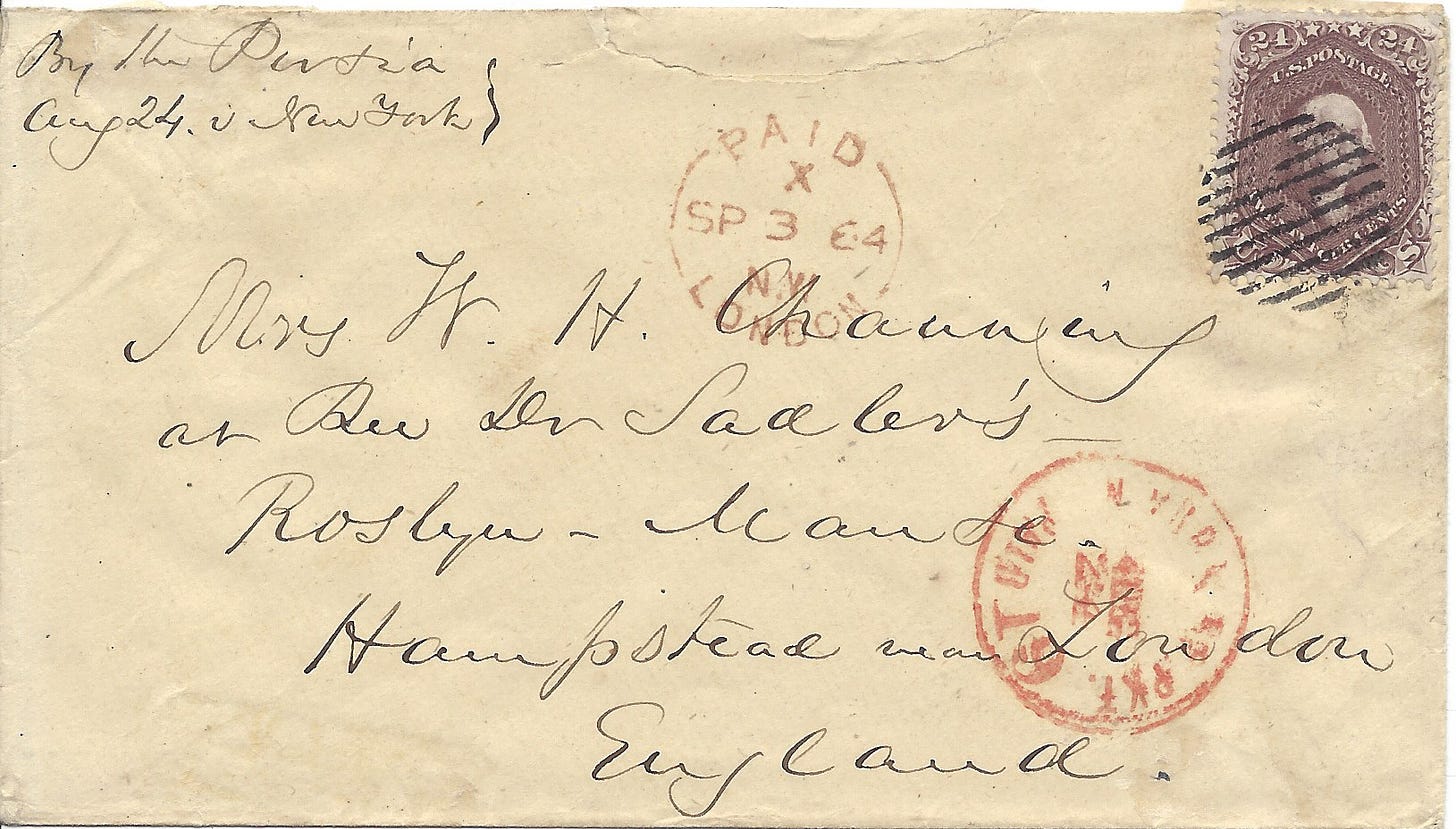 By the Persia
Aug 24. v New York
24 24
U.S. POSTAGE
PAID
X
SP 3 64
N.W
LONDON
Mrs W. H. Channing
at Rev Dr Sadler's
Roslyn - Manse.
Hampstead near London
England.
PKT.